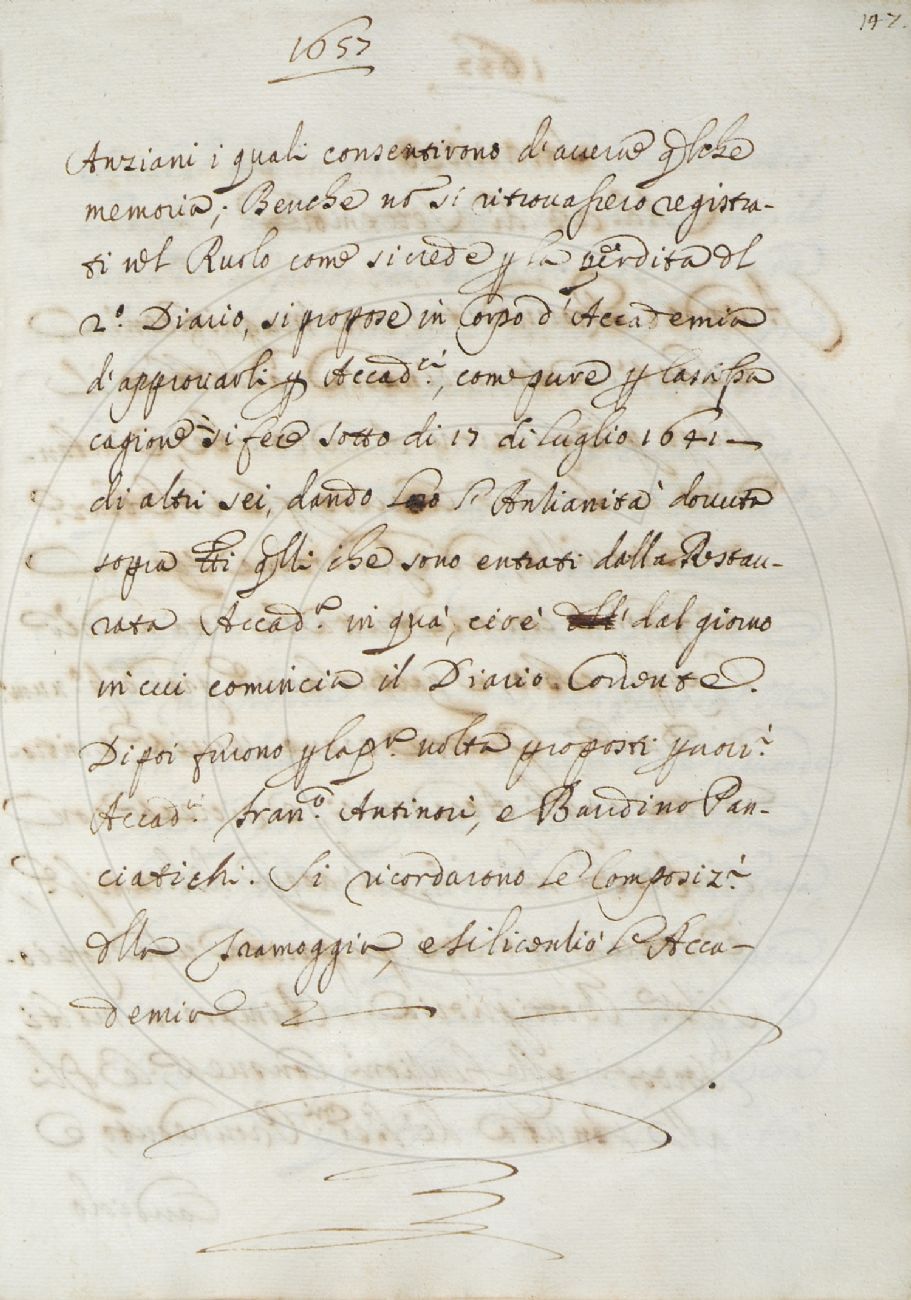 147.
1657
Anziani i quali consentirono d'averne qlche
memoria; Benche nō si ritrovassero registra-
ti nel Ruolo come si crede p la perdita dl
2.º Diario, si propose in Corpo d'Accademia
d'approvarli p Accad.ci, come pure p la stessa
cagione si fece sotto di 17 di Luglio 1641 —
di altri sei, dando loro l'Antianità dovuta
sopra tti qlli che sono entrati dalla Restau-
rata Accad.ª in quà, cioè dal giorno
in cui comincia il Diario Corrente.
Dipoi furono p la pª volta proposti p nuovi
Accad.ci Fran.º Antinori, e Bandino Pan-
ciatichi. Si ricordarono le Composiz.i
dlla Stramoggia, e si licentiò l'Acca-
demia